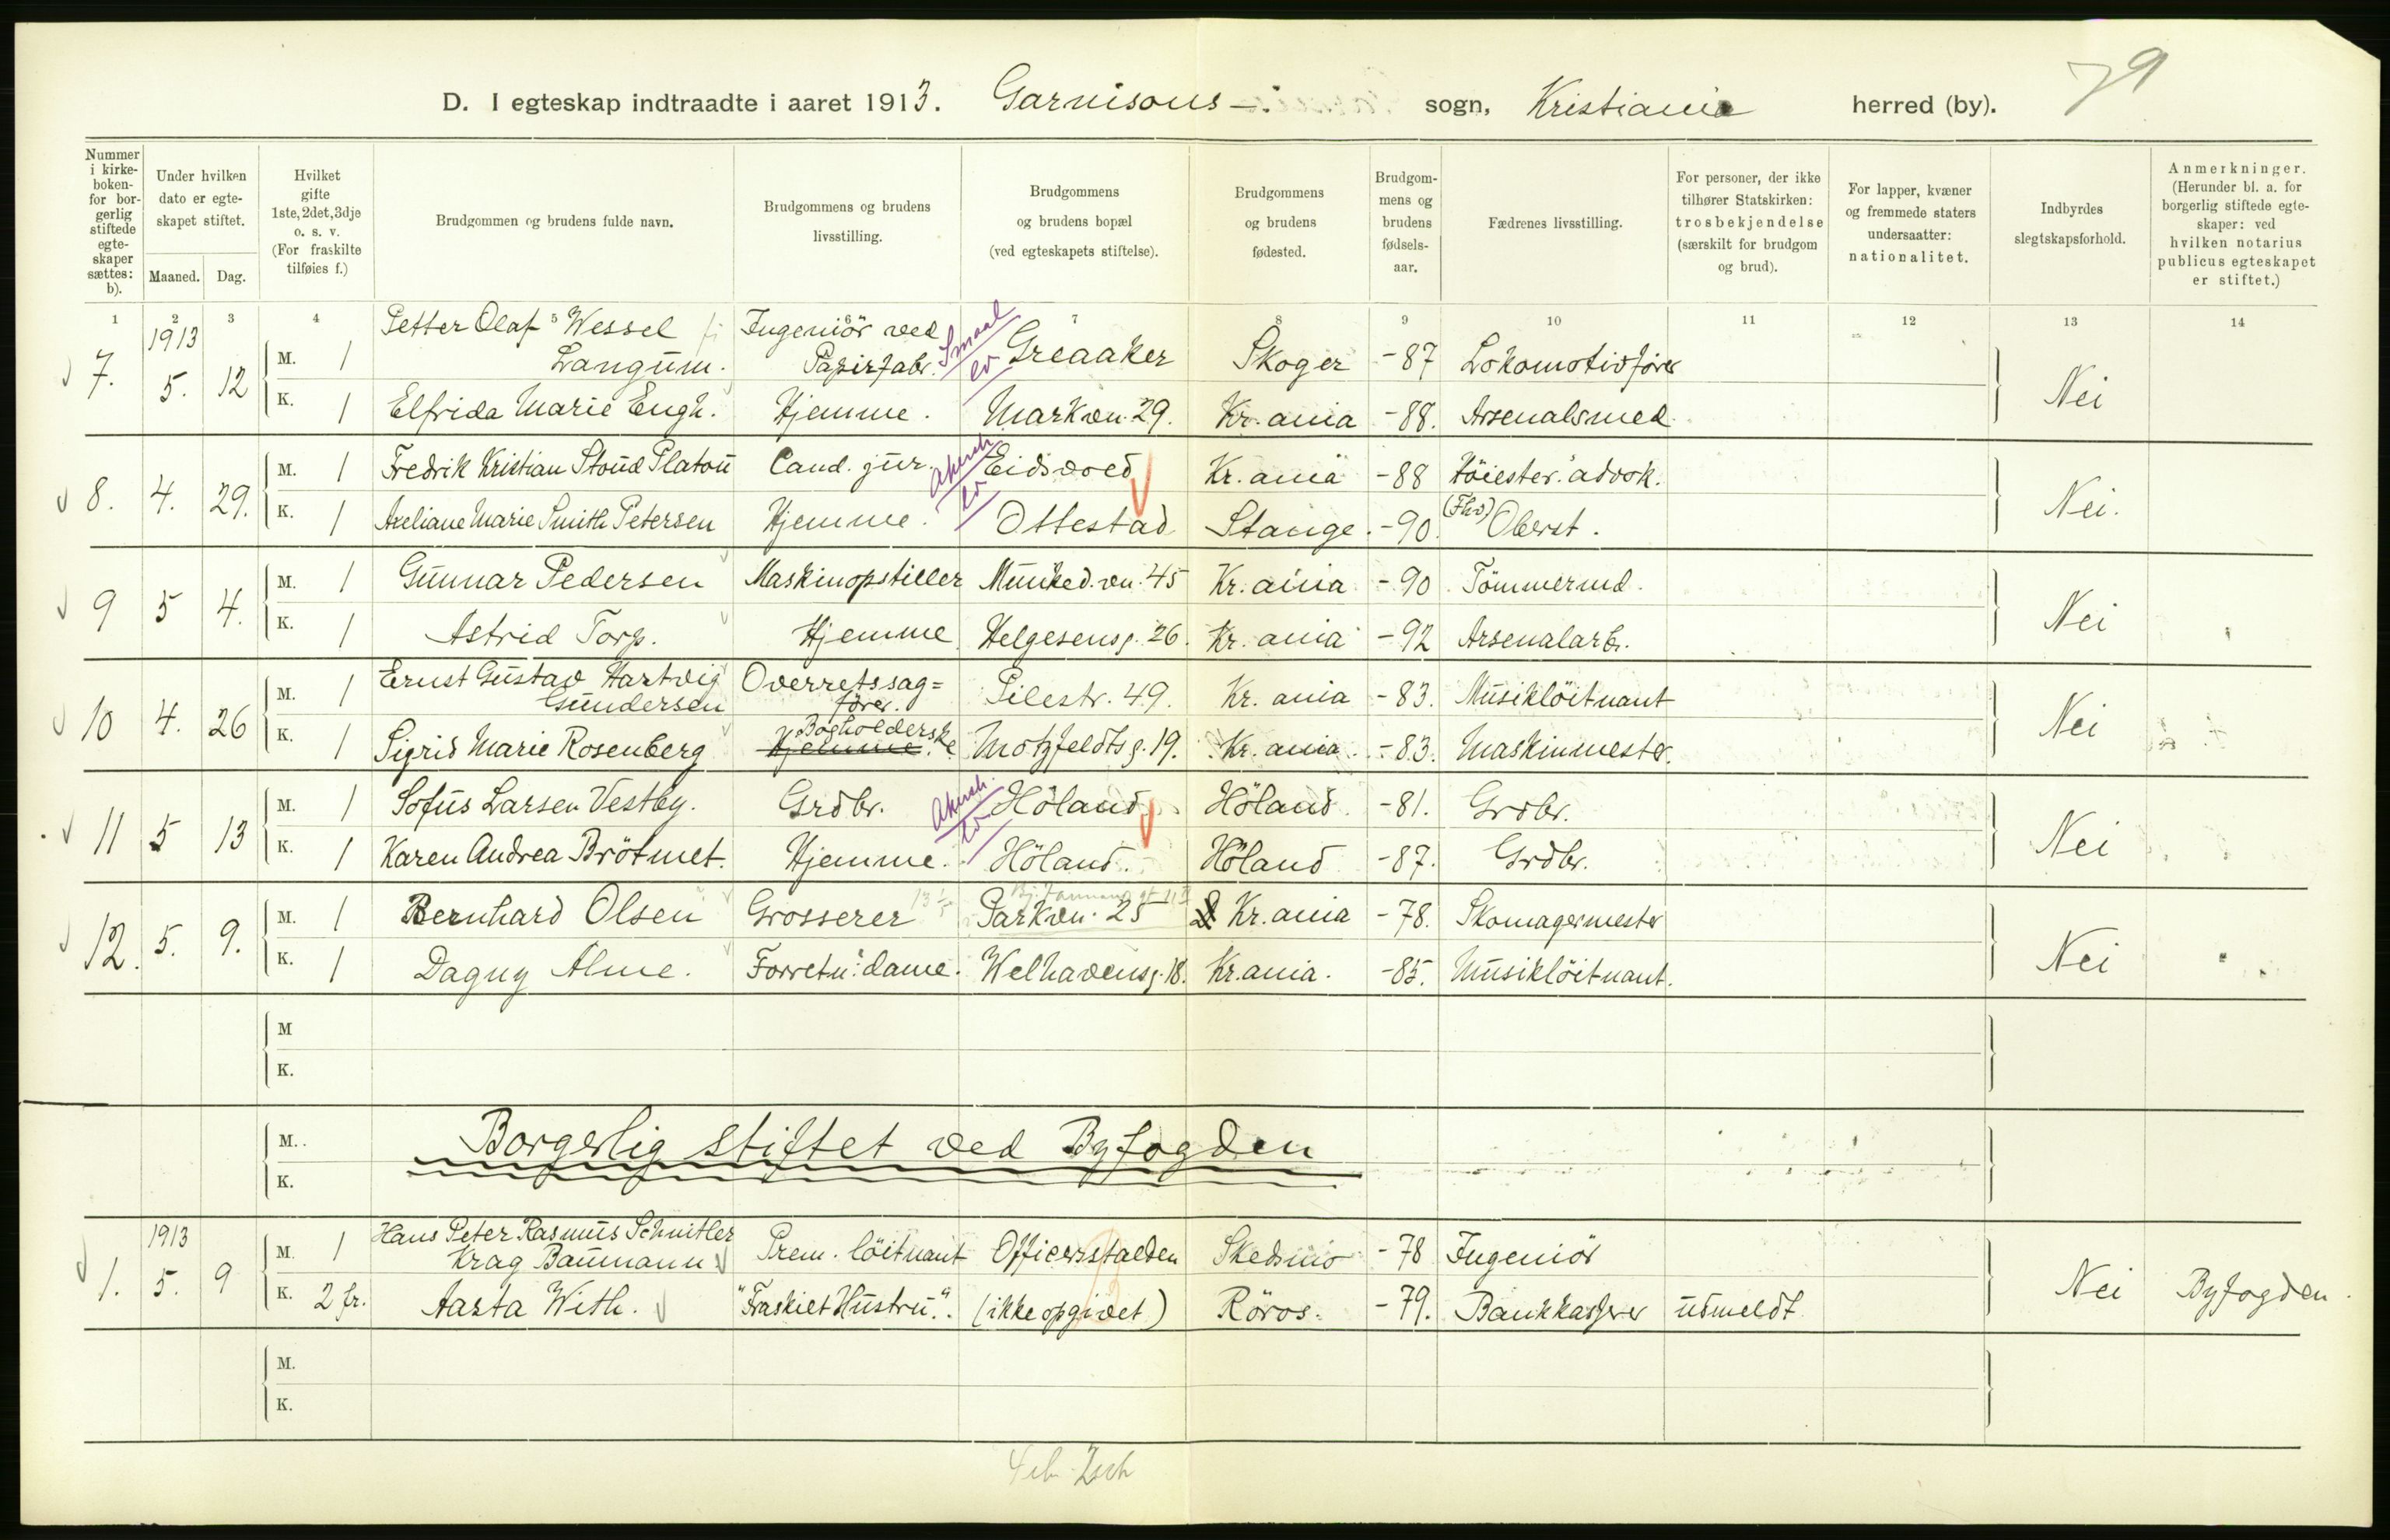 79
D. I egteskap indtraadte i aaret 1913. Garnisons- sogn, Kristiania herred (by).
Nummer i kirke-boken- for bor-gerlig stiftede egte-skaper sættes: b).
Under hvilken dato er egte-skapet stiftet.
Maaned. Dag.
Hvilket gifte 1ste, 2det, 3dje o. s. v. (For fraskilte tilføies f.)
Brudgommen og brudens fulde navn.
Brudgommens og brudens livsstilling.
Brudgommens og brudens bopæl (ved egteskapets stiftelse).
Brudgommens og brudens fødested.
Brudgom-mens og brudens fødsels-aar.
Fædrenes livsstilling.
For personer, der ikke tilhører Statskirken: trosbekjendelse (særskilt for brudgom og brud).
For lapper, kvæner og fremmede staters undersaatter: nationalitet.
Indbyrdes slegtskapsforhold.
Anmerkninger. (Herunder bl. a. for borgerlig stiftede egte-skaper: ved hvilken notarius publicus egteskapet er stiftet.)
1 2 3 4 5 6 7 8 9 10 11 12 13 14
1913
7. 5. 12 M. 1 Petter Olaf Wessel Langum. Ingeniör ved Papirfabr. Smaal Greaaker Skoger -87 Lokomotivförer Nei
K. 1 Elfrida Marie Engh. Hjemme. Markvn. 29. Kr.ania -88. Arsenalsmed.
8. 4. 29. M. 1 Fredrik Kristian Stoud Platou Cand. jur. Akersh Eidsvold Kr.ania -88 Höiester. advok. Nei.
K. 1 Axeliane Marie Smith Petersen Hjemme. Ottestad Stange. -90. (Fhv) Oberst.
9 5 4. M. 1 Gunnar Pedersen Maskinopstiller Munked.vn. 45 Kr.ania -90 Tömmermd. Nei
K. 1 Astrid Torp. Hjemme Helgesensg. 26. Kr.ania -92 Arsenalarb.
10 4. 26 M. 1 Ernst Gustav Hartvig Gundersen Overretssag=förer. Pilestr. 49. Kr.ania -83. Musiklöitnant Nei
K. 1 Sigrid Marie Rosenberg Hjemme. Bogholderske Motzfeldtsg. 19. Kr.ania -83. Maskinmester.
11 5 13 M. 1 Sofus Larsen Vestby. Grdbr. Akersh. Höland Höland -81. Grdbr. Nei
K. 1 Karen Andrea Brötmet. Hjemme. Höland. Höland -87. Grdbr.
12. 5. 9. M. 1 Bernhard Olsen Grosserer Parkvn. 25 Kr.ania -78. Skomagermester Nei
K. 1 Dagny Alme. Forretn. dame. Welhavensg. 18. Kr.ania. -85. Musiklöitnant.
M
K.
M. Borgerlig stiftet ved Byfogden
K.
1913
1. 5. 9 M. 1 Hans Peter Rasmus Schnitler Krag Baumann Prem. löitnant Officersstalden Skedsmo -78 Ingeniör Nei Byfogden.
K. 2 fr. Aasta With. "Fraskilt Hustru". (ikke opgivet) Röros. -79. Bankkasserer udmeldt
M.
K.